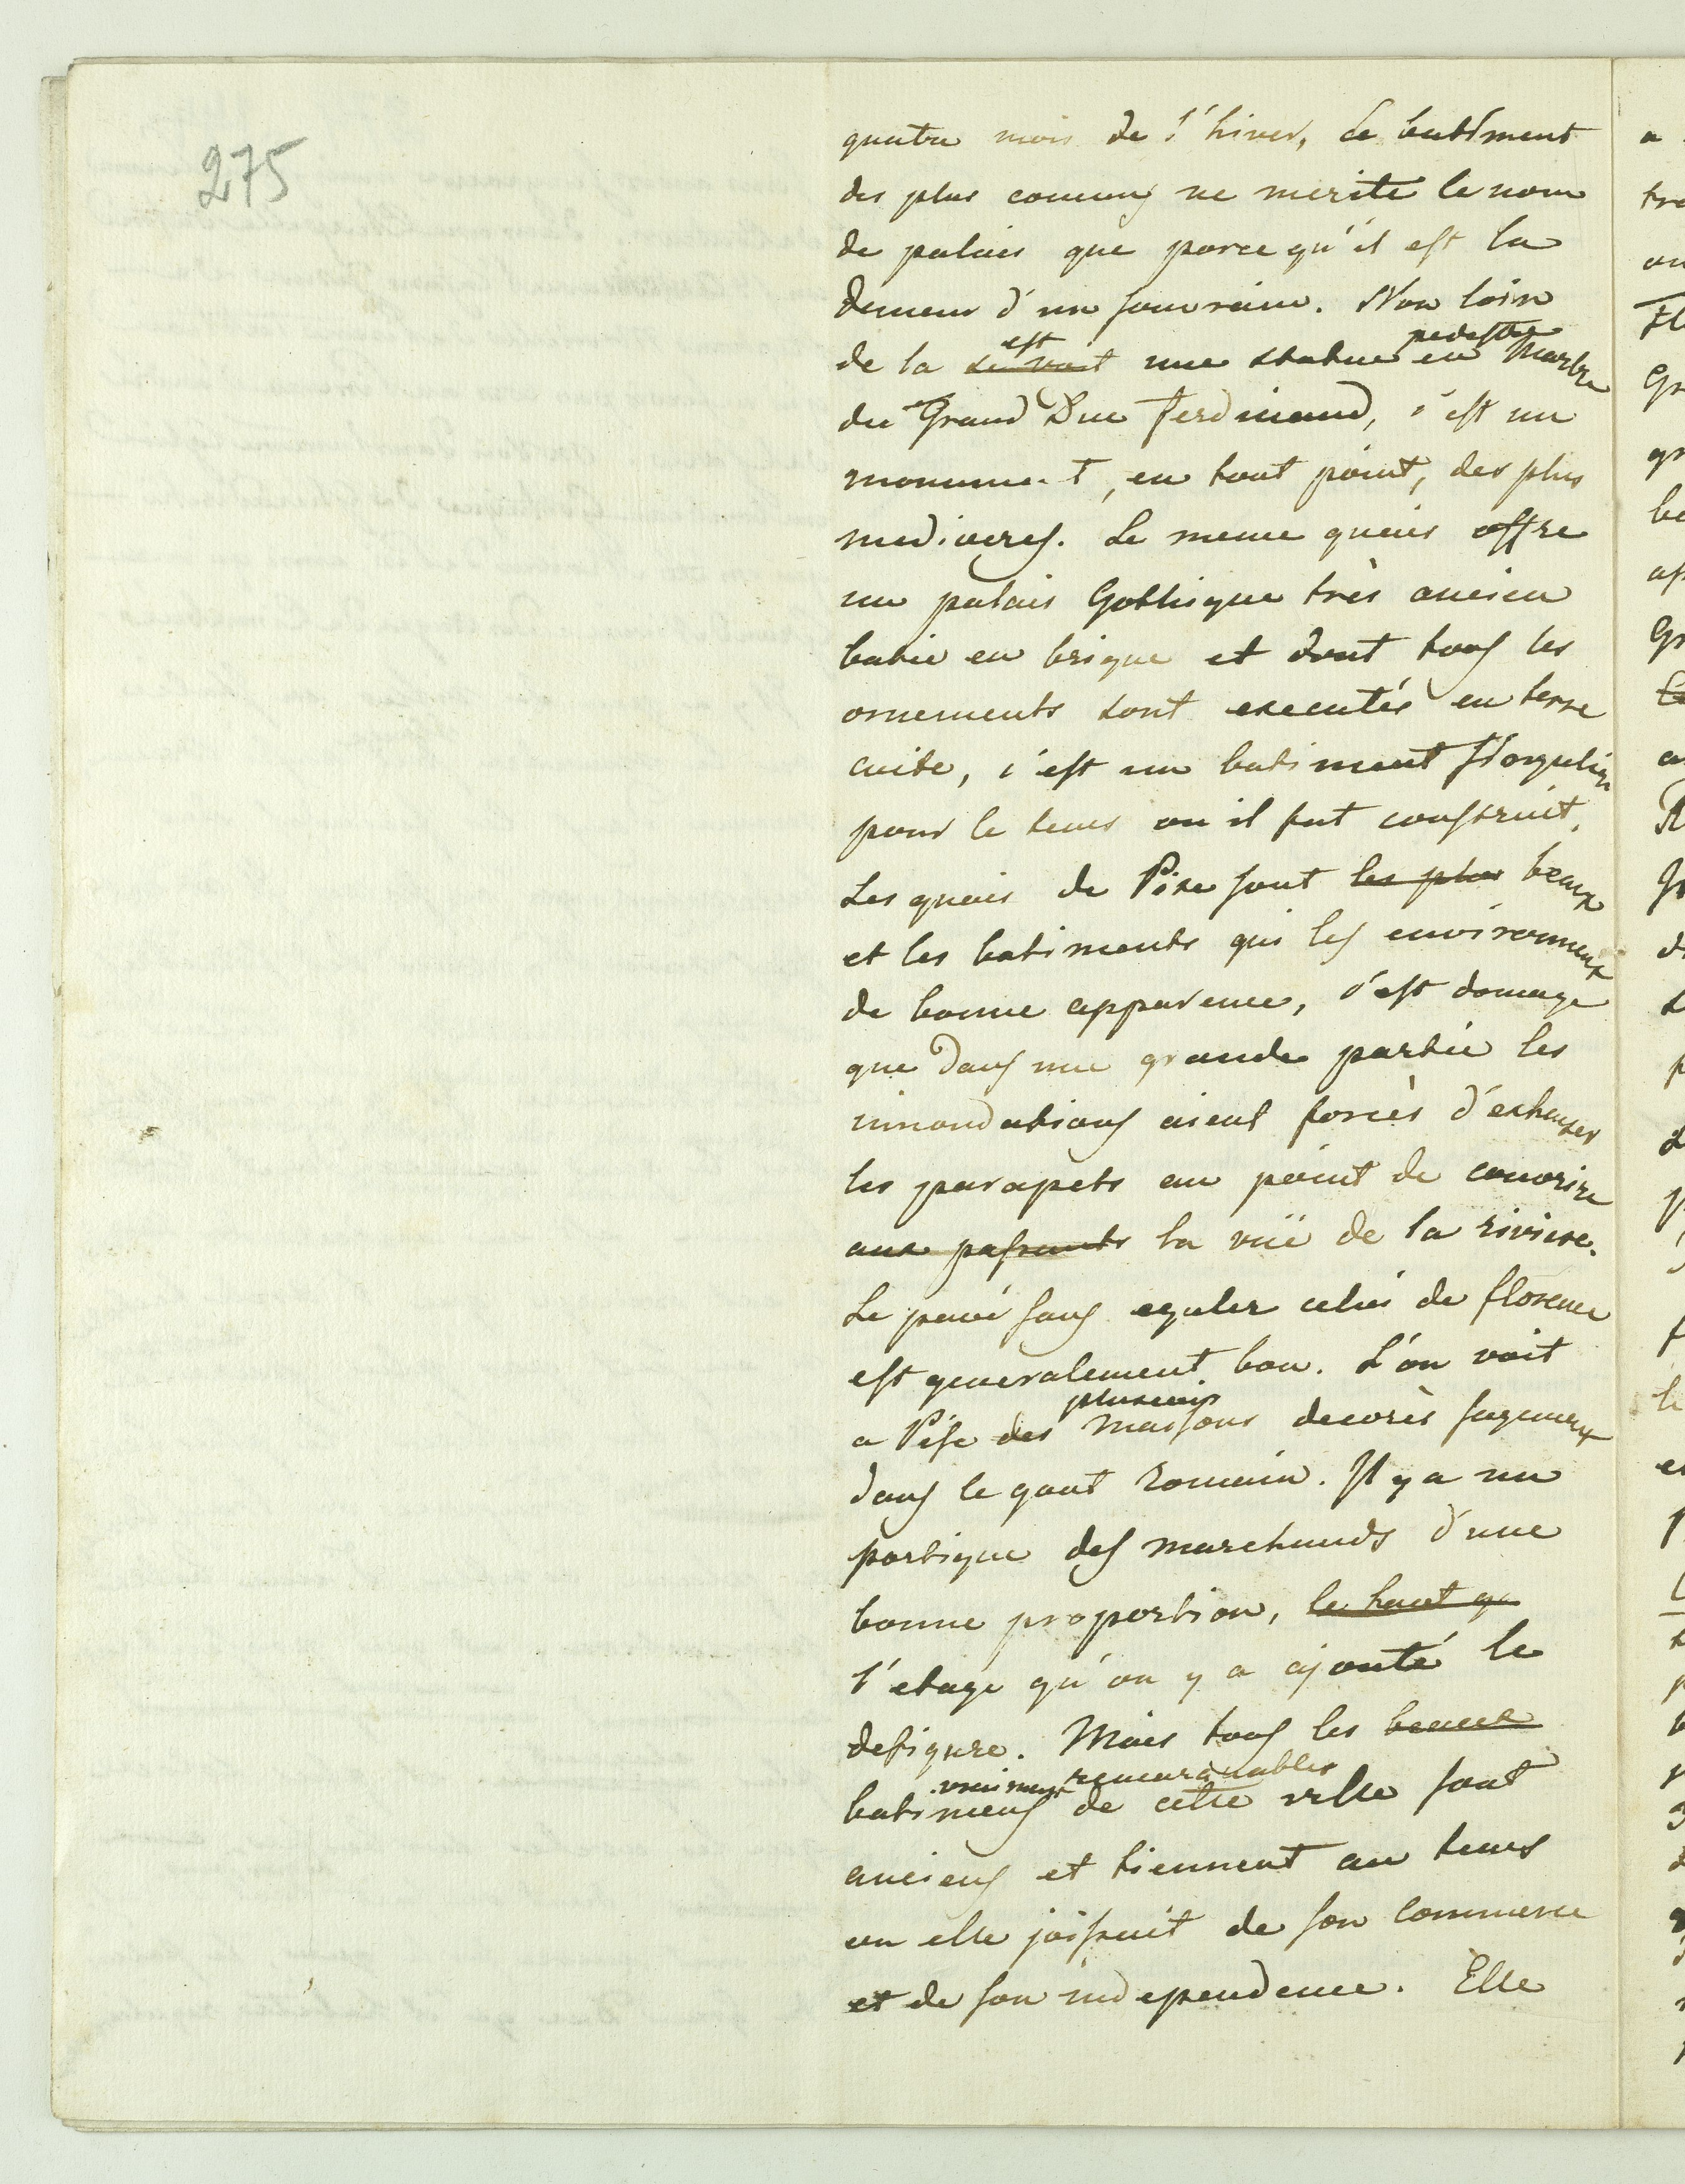 275
quatre mois de l'hiver, Le batiment
des plus comuns ne merite le nom
de palais que parce qu'il est la
demeur d'un souverain. Non loin
de la se voit est une statue pedestre en Marbre
du Grand Duc ferdinand, c'est un
monument, en tout point, des plus
mediocres. Le meme quais offre
un palais Gothique très ancien
batie en brique et dont tous les
ornements sont executés en terre
cuite, c'est un batiment singulier
pour le tems ou il fut construit,
Les quais de Pise sont les plus beaux
et les batiments qui les environnent
de bonne apparence, c'est domage
que dans une grande partie les
innondations aient forcès d'exhauser
les parapets au point de couvrire
aux passants la vüe de la riviere.
Le pavé sans egaler celui de florence
est generalement bon. L'on voit
a Pise des plusieurs Maisons decorès sagement
dans le gout Romain. Il y a un
portique des marchands d'une
bonne proportion, le haut qu
l'etage qu'on y a ajouté le
defigure. Mais tous les beaux
batimens vraiment remarquables de cette ville sont
anciens et tiennent au tems
ou elle joissait de son Commerce
et de son independence. Elle